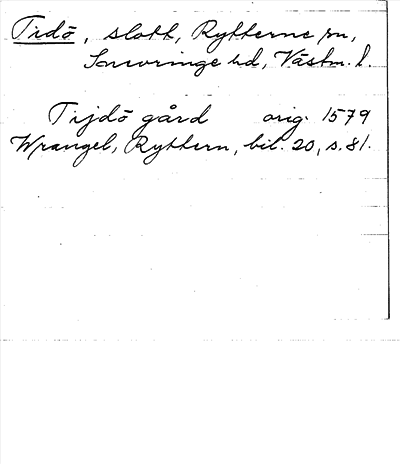 Tidö, slott, Rytterne sn,
Snevringe hd, Västm. l.
Tijdö gård orig. 1579
Wrangel, Ryttern, bil. 20, s. 81.